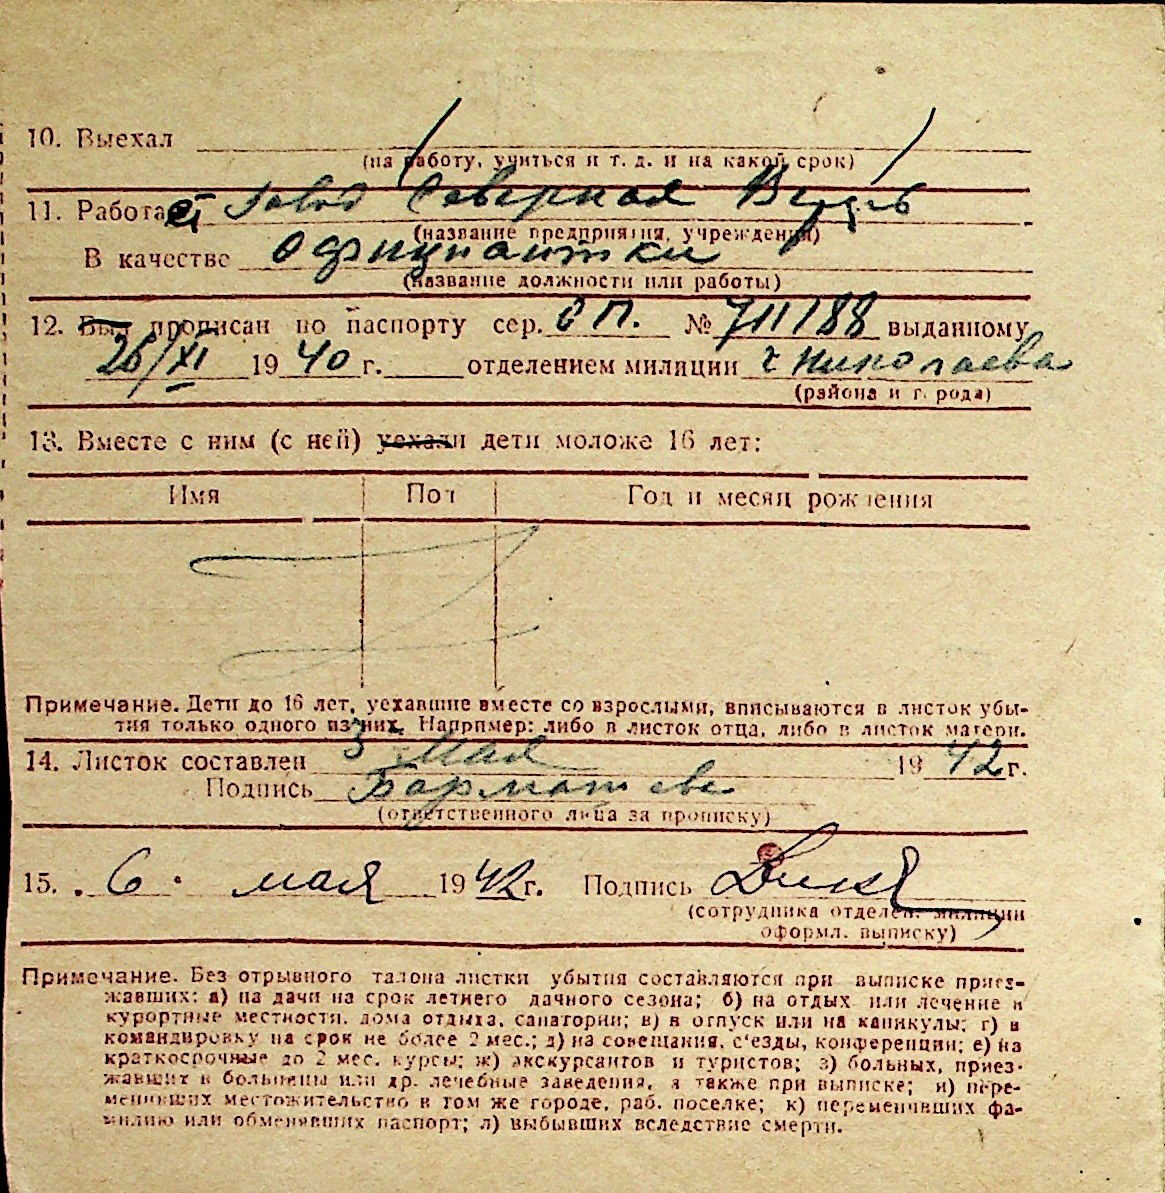 10. Выехал
(на работу, учиться и т. д. и на какой срок)
11. Работает Завод Северная Верфь
(название предприятия, учреждения)
В качестве Официантки
(название должности или работы)
12. Был прописан по паспорту сер. ОП. № 711188 выданному
26/XI 1940 г. отделением милиции г Николаева
(района и города)
13. Вместе с ним (с ней) уехали дети моложе 16 лет:
Имя Пол Год и месяц рождения
Примечание. Дети до 16 лет, уехавшие вместе со взрослыми, вписываются в листок убы-
тия только одного из них. Например: либо в листок отца, либо в листок матери.
14. Листок составлен 3 мая 1942 г.
Подпись
(ответственного лица за прописку)
15. 6. мая 1942 г. Подпись
(сотрудника отделен. милиции
оформл. выписку)
Примечание. Без отрывного талона листки убытия составляются при выписке приез-
жавших: а) на дачи на срок летнего дачного сезона; б) на отдых или лечение в
курортные местности, дома отдыха, санатории; в) в отпуск или на каникулы; г) в
командировку на срок не более 2 мес.; д) на совещания, с'езды, конференции; е) на
краткосрочные до 2 мес. курсы; ж) экскурсантов и туристов; з) больных, приез-
жавших в больницы или др. лечебные заведения, а также при выписке; и) пере-
менивших местожительство в том же городе, раб. поселке; к) переменивших фа-
милию или обменявших паспорт; л) выбывших вследствие смерти.